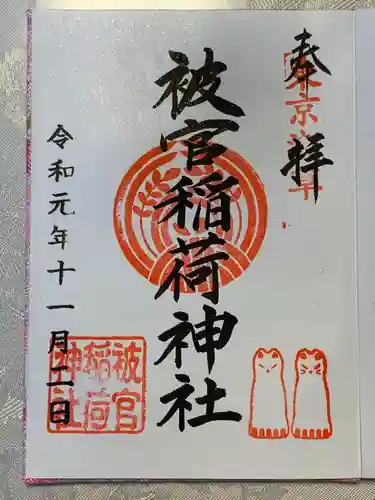 奉拝
東京浅草
被官稲荷神社
令和元年十一月二日
被官
稲荷
神社